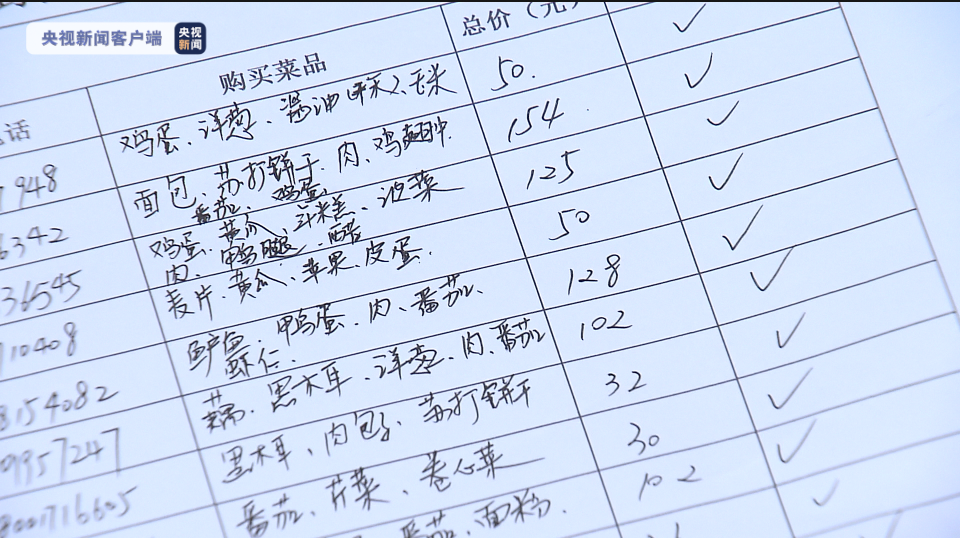 央视新闻客户端 央视新闻
话 购买菜品 总价（元）
鸡蛋、洋葱、酱油 、玉米 50. ✓
948 面包、苏打饼干、肉、鸡翅中 番茄、鸡蛋 154 ✓
6342 鸡蛋、黄瓜、米糕、菠菜 肉、鸭腿、醋 125 ✓
36545 麦片、黄瓜、苹果、皮蛋. 50 ✓
10408 鲈鱼、鸭蛋、肉、番茄、 虾仁. 128 ✓
8154082 藕、黑木耳、洋葱、肉、番茄 102 ✓
09957247 黑木耳、肉包子、苏打饼干 32 ✓
8001716605 番茄、芹菜、卷心菜 30 ✓
番茄、面粉. 102 ✓